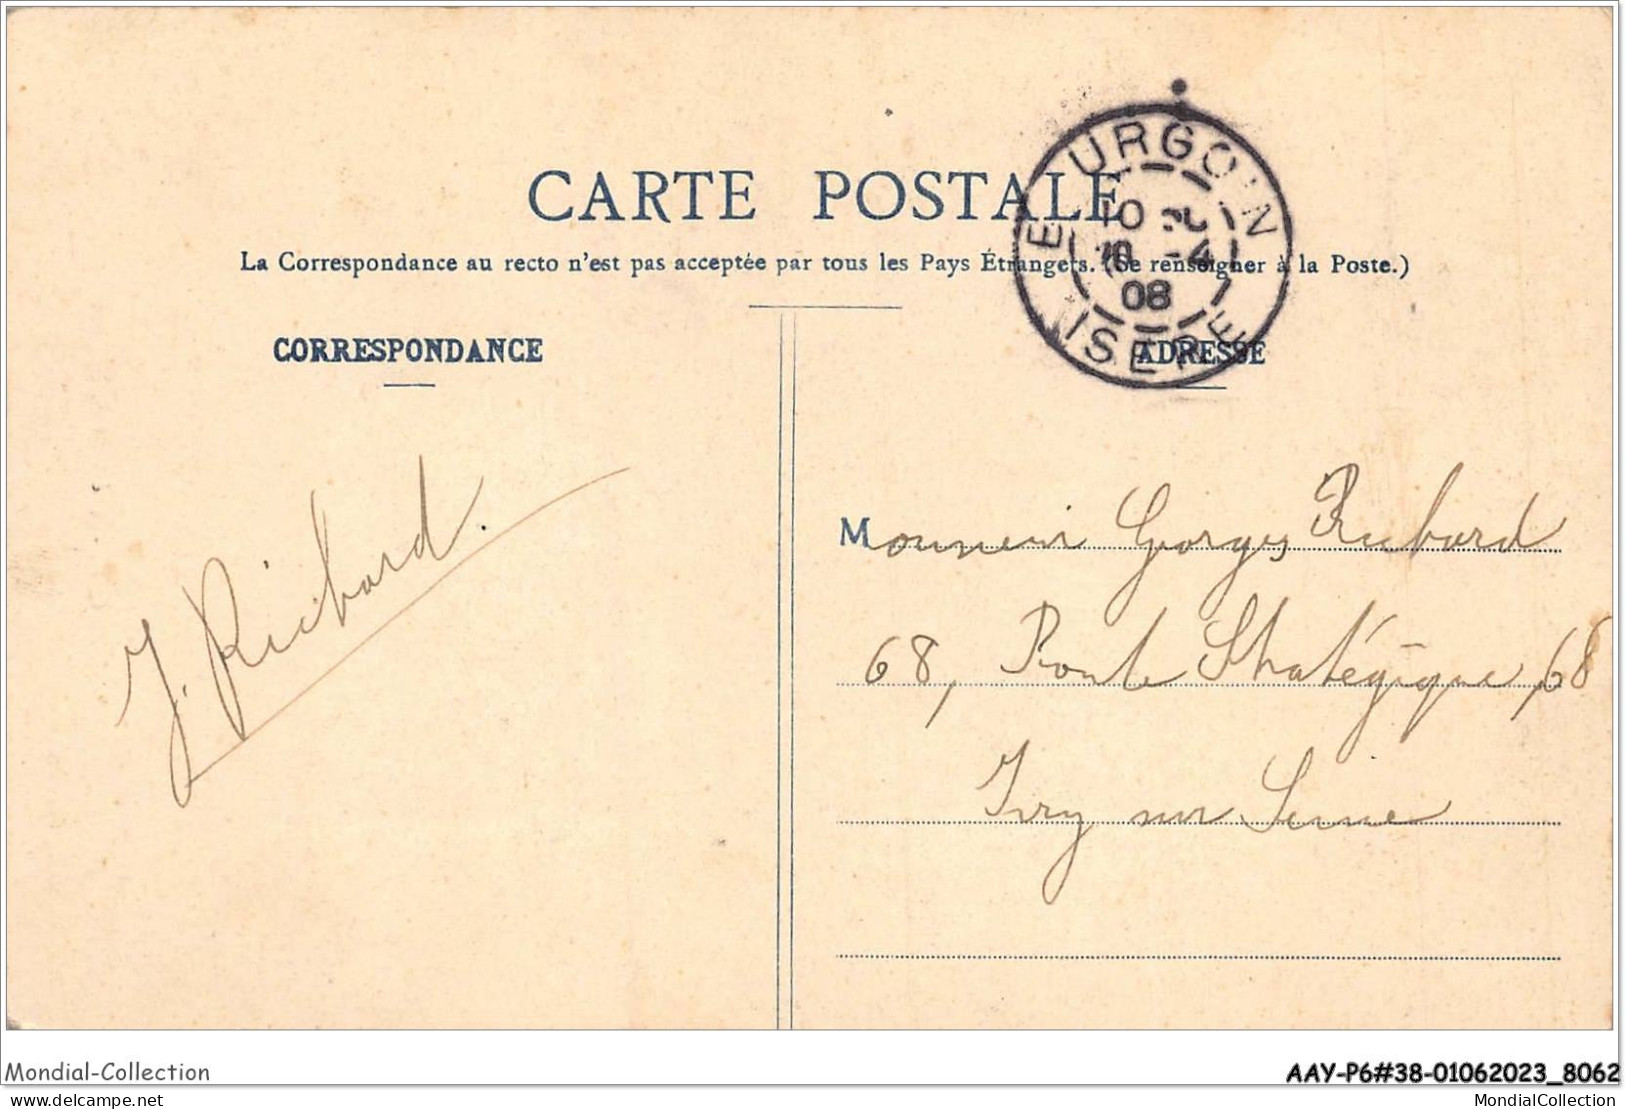 CARTE POSTALE
La Correspondance au recto n'est pas acceptée par tous les Pays Étrangers. (Se renseigner à la Poste.)
URGOIN
10
-4
08
ISERE
CORRESPONDANCE
ADRESSE
J. Richard.
Monsieur Georges Richard
68, Route Stratégique, 68
Ivry sur Seine
Mondial-Collection
AAY-P6#38-01062023_8062
delcampe.net
MondialCollection